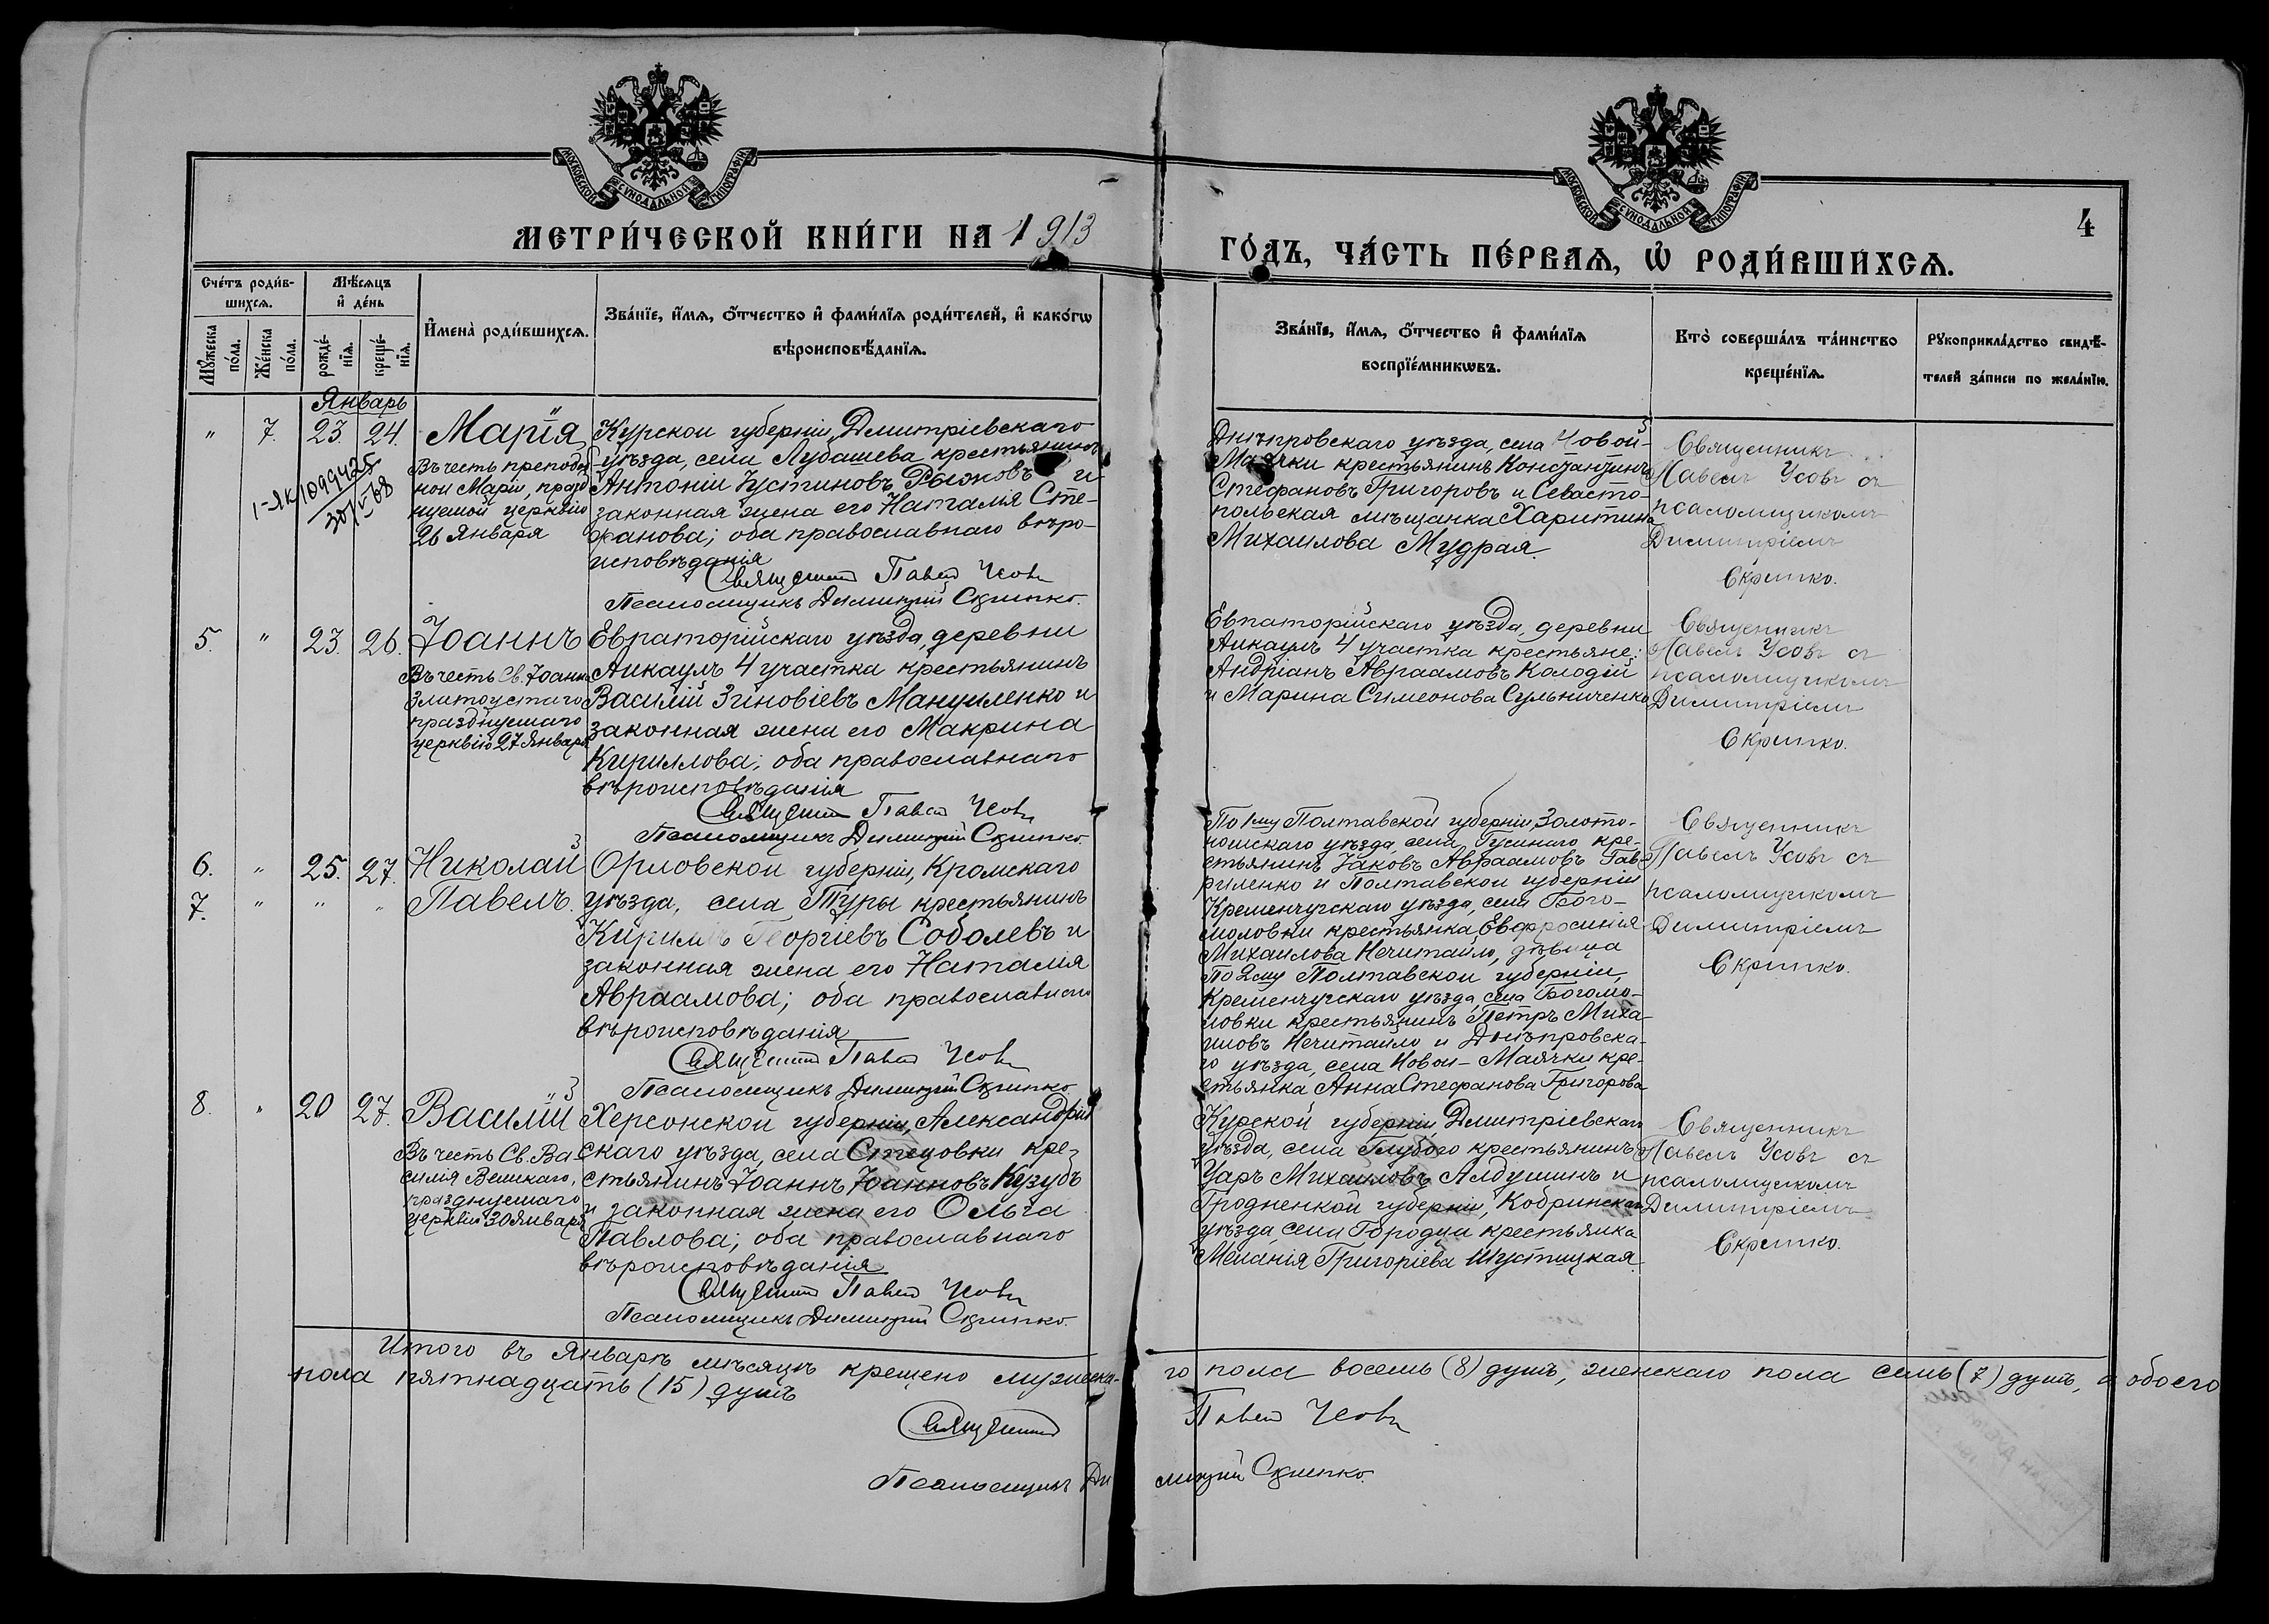 МОСКОВСКОЙ СѴНОДАЛЬНОЙ ТИПОГРАФІИ
МОСКОВСКОЙ СѴНОДАЛЬНОЙ ТИПОГРАФІИ
4
МЕТРИ́ЧЕСКОЙ КНИ́ГИ НА 1913
ГО́ДЪ, ЧА́СТЬ ПЕ́РВАѦ, Ѡ҆ РОДИ́ВШИХСѦ.
Сче́тъ роди́в-
шихсѧ.
Мѣ́сяцъ
и҆ де́нь
Мꙋ́жеска
по́ла.
Же́нска
по́ла.
рожде́-
нїѧ.
креще́-
нїѧ.
И҆мена̀ роди́вшихсѧ.
Зва́нїе, и҆́мѧ, ѻ҆́тчество и҆ фами́лїѧ роди́телей, и҆ како́гѡ
вѣроисповѣ́данїѧ.
Зва́нїе, и҆́мѧ, ѻ҆́тчество и҆ фами́лїѧ
воспрїе́мникѡвъ.
Кто̀ соверша́лъ та́инство
креще́нїѧ.
Рꙋкоприкла́дство свидѣ́-
телей за́писи по жела́нїю.
Январь
" 7. 23. 24. Марія
Въ честь преподоб
ной Маріи, празд
нуемой церквію
26 Января
1-ЯК 1099425
30/VI-68
Курской губерніи, Дмитріевскаго
уѣзда, села Лубашева крестьянинъ
Антоній Іустиновъ Рыжковъ и
законная жена его Наталія Сте-
фанова; оба православнаго вѣро-
исповѣданія
Священникъ Павелъ Усовъ
Псаломщикъ Димитрій Скрипко.
Днѣпровскаго уѣзда, села Новой-
Маячки крестьянинъ Константинъ
Стефановъ Григоровъ и Севасто-
польская мѣщанка Харитина
Михаилова Мудрая.
Священникъ
Павелъ Усовъ съ
псаломщикомъ
Димитріемъ
Скрипко.
5. " 23. 26. Іоаннъ
Въ честь Св. Іоанна
Златоустаго
празднуемаго
церквію 27 Января
Евпаторійскаго уѣзда, деревни
Аикаулъ 4 участка крестьянинъ
Василій Зиновіевъ Мануиленко и
законная жена его Макрина
Кириллова; оба православнаго
вѣроисповѣданія
Священникъ Павелъ Усовъ
Псаломщикъ Димитрій Скрипко.
Евпаторійскаго уѣзда, деревни
Аикаулъ 4 участка крестьяне:
Андріанъ Авраамовъ Колодій
и Марина Симеонова Сульниченко
Священникъ
Павелъ Усовъ съ
псаломщикомъ
Димитріемъ
Скрипко.
6. " 25. 27. Николай
7. " " " Павелъ.
Орловской губерніи, Кромскаго
уѣзда, села Туры крестьянинъ
Кириллъ Георгіевъ Соболевъ и
законная жена его Наталія
Авраамова; оба православнаго
вѣроисповѣданія
Священникъ Павелъ Усовъ
Псаломщикъ Димитрій Скрипко
По 1му Полтавской губерніи, Золото-
ношскаго уѣзда, села Гусинаго кре-
стьянинъ Іаковъ Авраамовъ Гав-
риленко и Полтавской губерніи
Кременчугскаго уѣзда, села Бого-
моловки крестьянка Евфросинія
Михаилова Нечитайло, дѣвица
По 2му Полтавской губерніи,
Кременчугскаго уѣзда, села Богомо-
ловки крестьянинъ Петръ Миха-
иловъ Нечитайло и Днѣпровска-
го уѣзда, села Новой-Маячки кре-
стьянка Анна Стефанова Григорова
Священникъ
Павелъ Усовъ съ
псаломщикомъ
Димитріемъ
Скрипко.
8. " 20 27. Василій
Въ честь Св. Ва-
силія Великаго,
празднуемаго
церквію 30 Января
Херсонской губерніи, Александрій
скаго уѣзда, села Стецовки кре-
стьянинъ Іоаннъ Іоанновъ Кузубъ
и законная жена его Ольга
Павлова; оба православнаго
вѣроисповѣданія
Священникъ Павелъ Усовъ
Псаломщикъ Димитрій Скрипко.
Курской губерніи Дмитріевскаго
уѣзда, села крестьянинъ
Уаръ Михаиловъ Алдушинъ и
Гродненской губерніи, Кобринскаго
уѣзда, села Городца крестьянка
Меланія Григоріева Шустицкая.
Священникъ
Павелъ Усовъ съ
псаломщикомъ
Димитріемъ
Скрипко.
Итого въ Январѣ мѣсяцѣ крещено мужеска-го пола восемь (8) душъ, женскаго пола семь (7) душъ, а обоего
пола пятнадцать (15) душъ
Священникъ Павелъ Усовъ
Псаломщикъ Димитрій Скрипко.